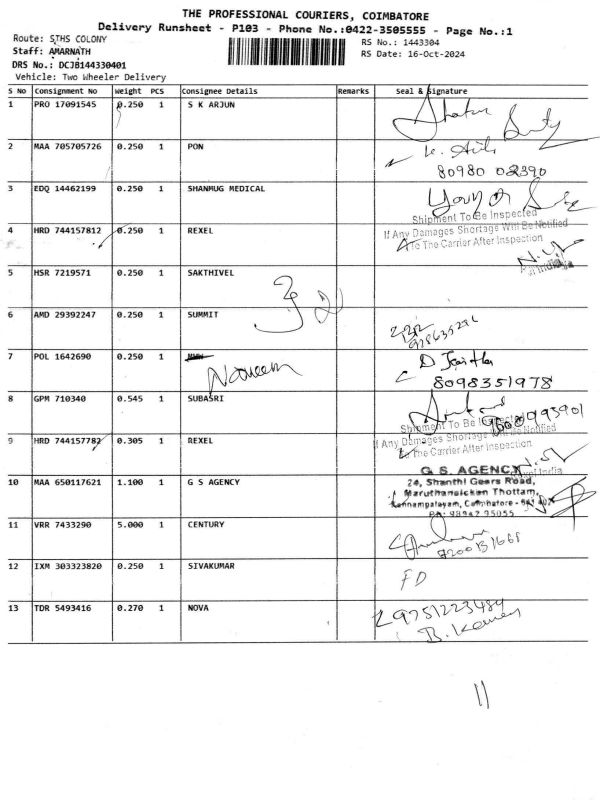 THE PROFESSIONAL COURIERS, COIMBATORE
Delivery Runsheet - P103 - Phone No.:0422-3505555 - Page No.:1
Route: STHS COLONY
RS No.: 1443304
Staff: AMARNATH
RS Date: 16-Oct-2024
DRS No.: DCJB144330401
Vehicle: Two Wheeler Delivery
S No Consignment No Weight PCS Consignee Details Remarks Seal & Signature
1 PRO 17091545 0.250 1 S K ARJUN
2 MAA 705705726 0.250 1 PON
80980 02390
3 EDQ 14462199 0.250 1 SHANMUG MEDICAL
Shipment To Be Inspected
If Any Damages Shortage Will Be Notified
To The Carrier After Inspection
4 HRD 744157812 0.250 1 REXEL
5 HSR 7219571 0.250 1 SAKTHIVEL
6 AMD 29392247 0.250 1 SUMMIT
7 POL 1642690 0.250 1
Naveen
8098351978
8 GPM 710340 0.545 1 SUBASRI
Shipment To Be Inspected
If Any Damages Shortage Will Be Notified
To The Carrier After Inspection
9 HRD 744157782 0.305 1 REXEL
10 MAA 650117621 1.100 1 G S AGENCY
G. S. AGENCY
24, Shanthi Gears Road,
Maruthanaicken Thottam,
Kannampalayam, Coimbatore - 641 402
PH: 98942 95055
11 VRR 7433290 5.000 1 CENTURY
12 IXM 303323820 0.250 1 SIVAKUMAR
FD
13 TDR 5493416 0.270 1 NOVA
9751223484
11